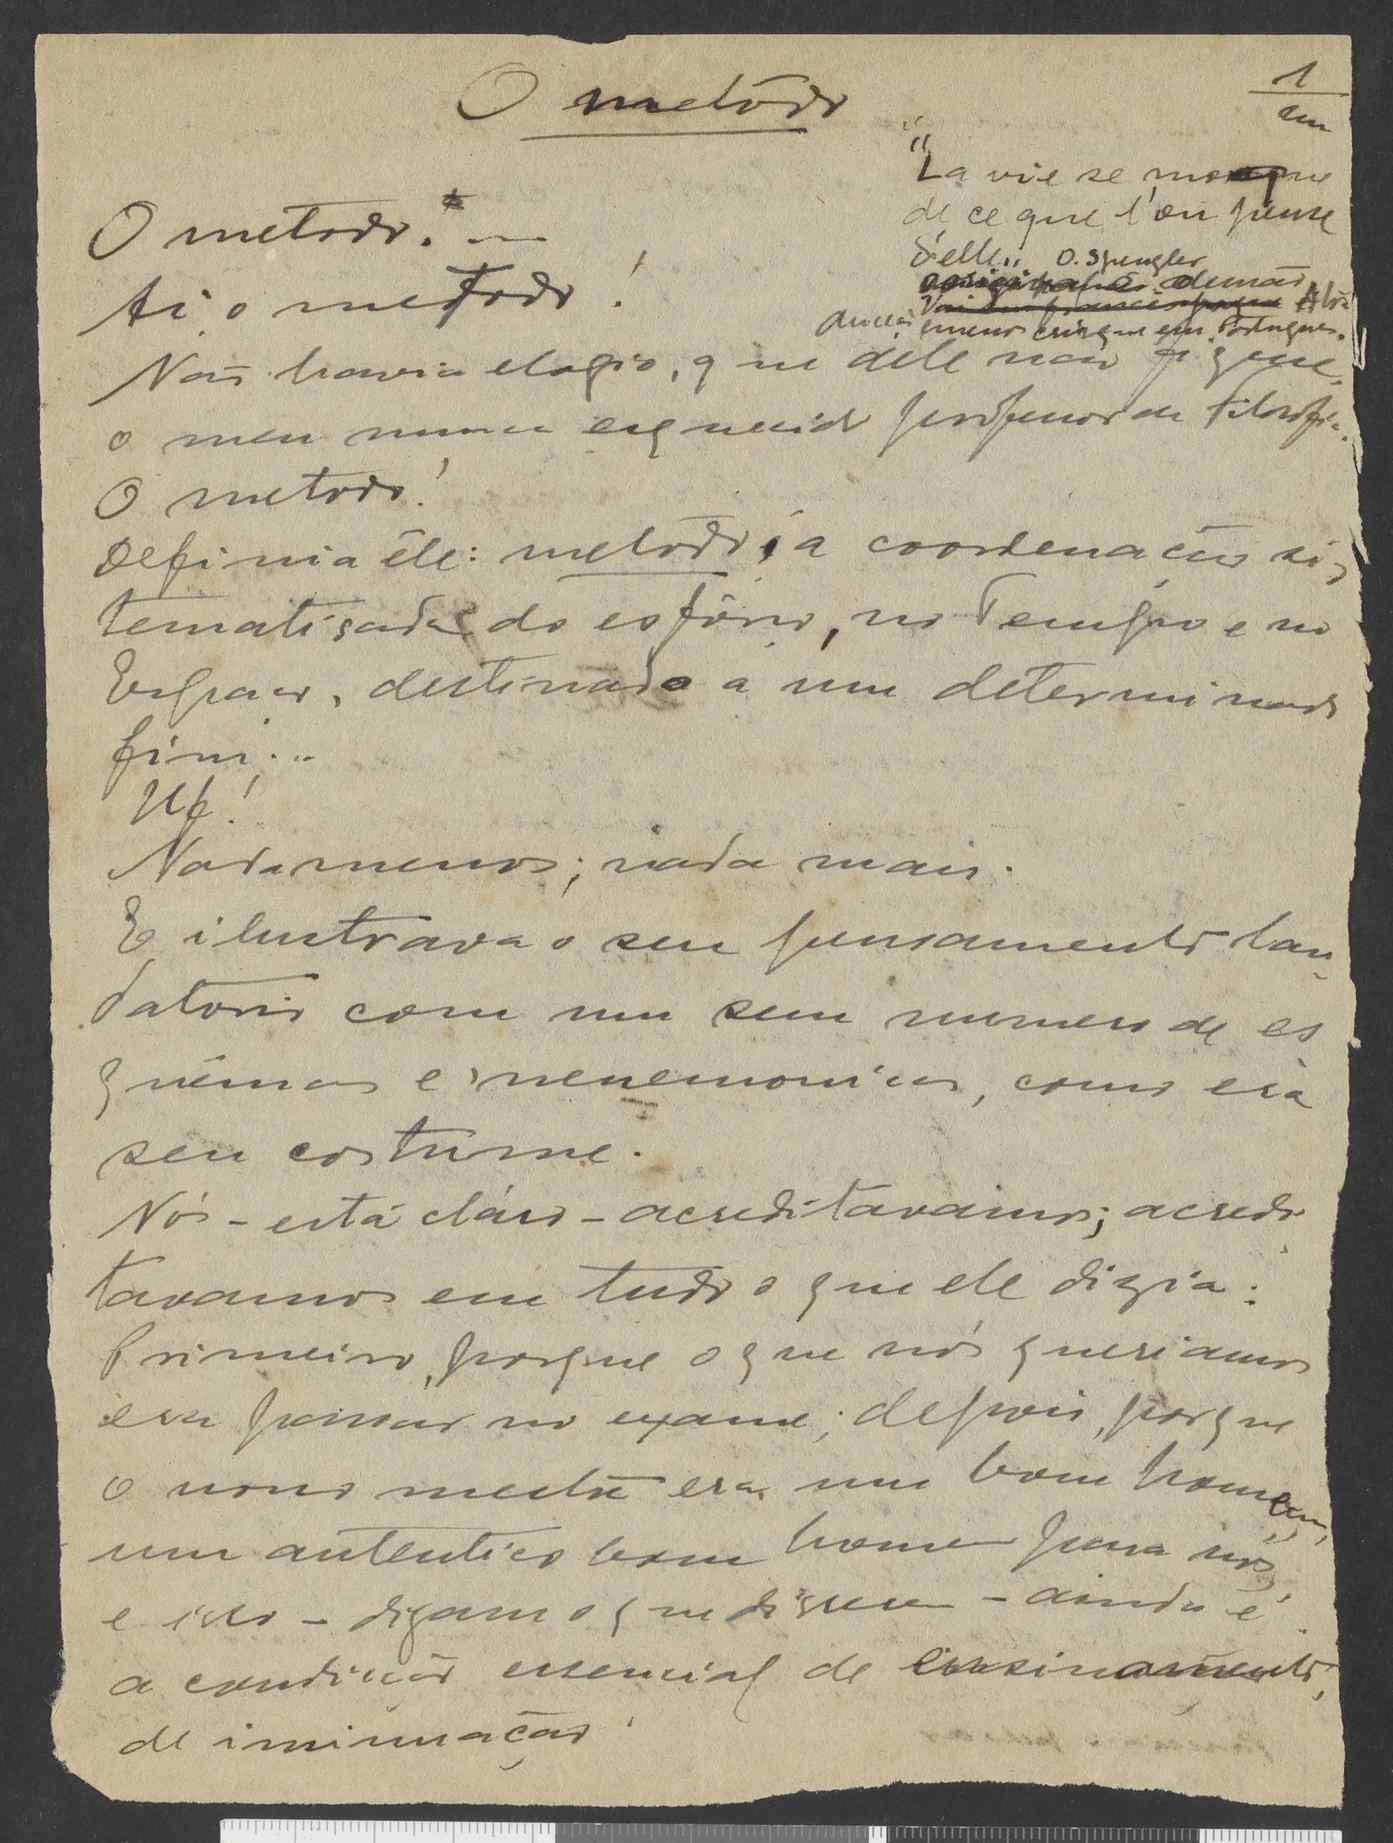 O metôdo
1
um
"La vie se moque
de ce que l'on pense
d'elle" O. Spengler
O metodo.
Ai o metodo!
Não havia elogio, que dele não fizesse,
o meu nunca esquecido professor de filosofia.
O metodo!
Definia êle: metôdo, é a coordenação sis
tematisada do esfôrço, no Tempo e no
Espaço, destinado a um determinado
fim...
Uf!
Nada menos; nada mais.
E ilustrava o seu pensamento lau-
datorio com um sem numero de es
quêmas e menemonicas, como era
seu costume.
Nós - está cláro - acreditavamos; acredi
tavamos em tudo o que ele dizia:
Primeiro, porque o que nós queriamos
era passar no exame; depois, porque
o nosso mestre era um bom homem,
um autentico bom homem para nós,
e isto - digam o que disserem - ainda é
a condição essencial de ensinamento,
de insinuação.